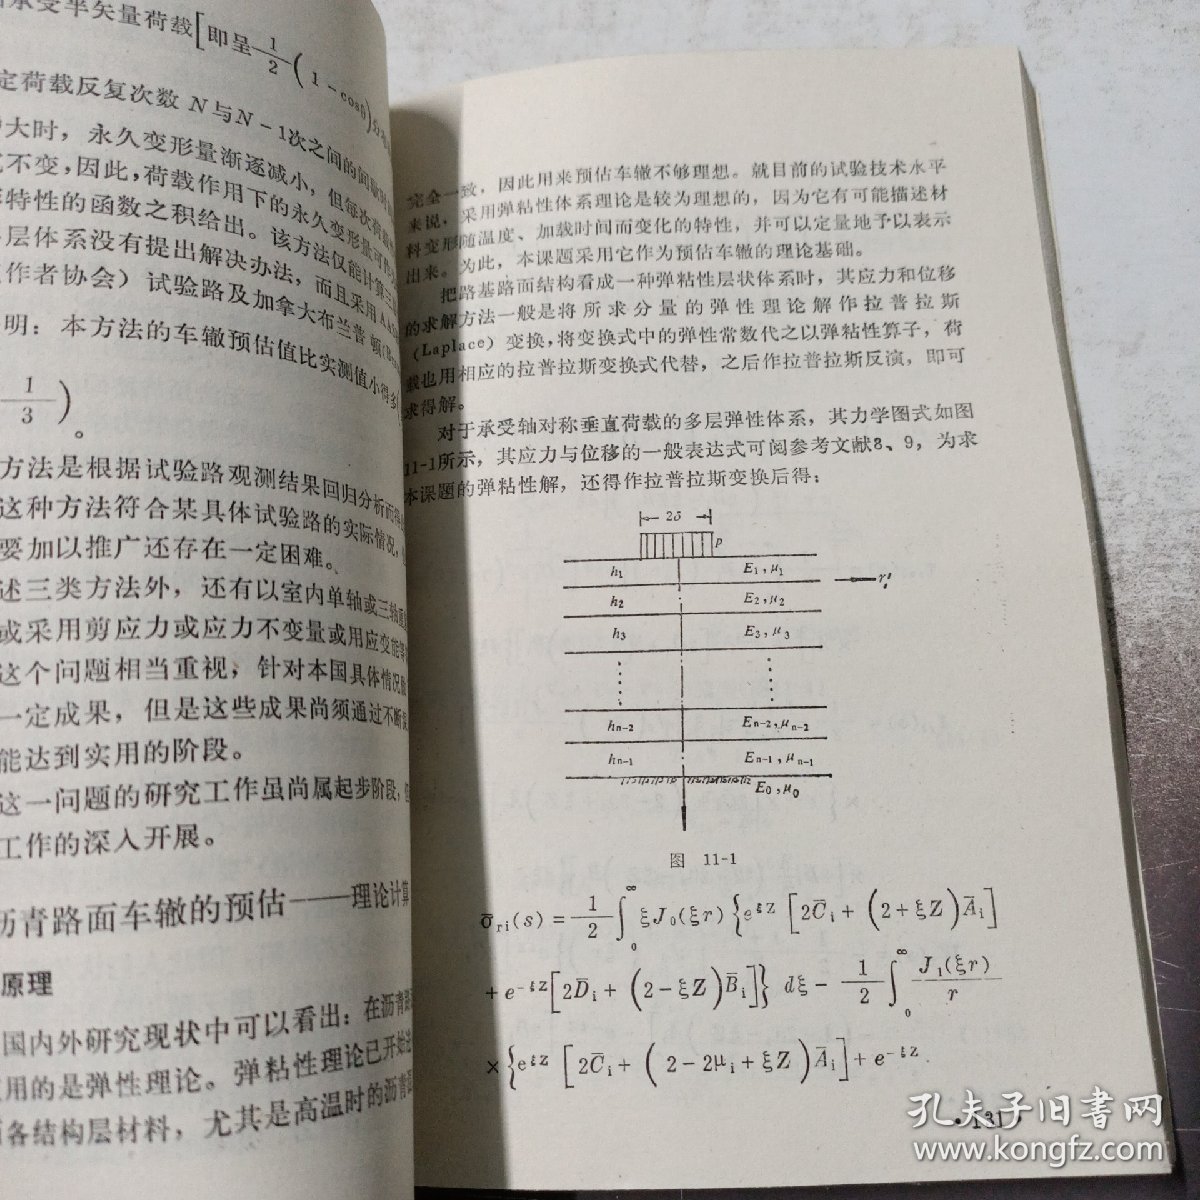 承受半矢量荷载[即呈 1/2 (1-cosθ)
定荷载反复次数 N与N-1次之间的间
大时，永久变形量渐逐减小，但每次荷
不变，因此，荷载作用下的永久变形量可
特性的函数之积给出。该方法仅能计算三
层体系没有提出解决办法，而且采用AA
作者协会）试验路及加拿大布兰普顿
明：本方法的车辙预估值比实测值小得多
1/3 )。
方法是根据试验路观测结果回归分析而得
这种方法符合某具体试验路的实际情况，
要加以推广还存在一定困难。
述三类方法外，还有以室内单轴或三轴重
或采用剪应力或应力不变量或用应变能等
这个问题相当重视，针对本国具体情况
一定成果，但是这些成果尚须通过不断
能达到实用的阶段。
这一问题的研究工作虽尚属起步阶段，
工作的深入开展。
沥青路面车辙的预估——理论计算
原理
国内外研究现状中可以看出：在沥青
用的是弹性理论。弹粘性理论已开始
各结构层材料，尤其是高温时的沥青
完全一致，因此用来预估车辙不够理想。就目前的试验技术水平
来说，采用弹粘性体系理论是较为理想的，因为它有可能描述材
料变形随温度、加载时间而变化的特性，并可以定量地予以表示
出来。为此，本课题采用它作为预估车辙的理论基础。
把路基路面结构看成一种弹粘性层状体系时，其应力和位移
的求解方法一般是将所求分量的弹性理论解作拉普拉斯
（Laplace）变换，将变换式中的弹性常数代之以弹粘性算子，荷
载也用相应的拉普拉斯变换式代替，之后作拉普拉斯反演，即可
求得解。
对于承受轴对称垂直荷载的多层弹性体系，其力学图式如图
11-1所示，其应力与位移的一般表达式可阅参考文献8、9，为求
本课题的弹粘性解，还得作拉普拉斯变换后得：
2δ
p
h₁ E₁,μ₁
r
h₂ E₂,μ₂
h₃ E₃,μ₃
hn-2 En-2,μn-2
hn-1 En-1,μn-1
E₀,μ₀
图 11-1
σ̄ri(s)=1/2∫₀^∞ ξJ₀(ξr){e^ξZ[2C̄i+(2+ξZ)Āi]
+e^-ξZ[2D̄i+(2-ξZ)B̄i]}dξ-1/2∫₀^∞ J₁(ξr)/r
×{e^ξZ[2C̄i+(2-2μi+ξZ)Āi]+e^-ξZ
·131·
孔夫子旧书网
www.kongfz.com